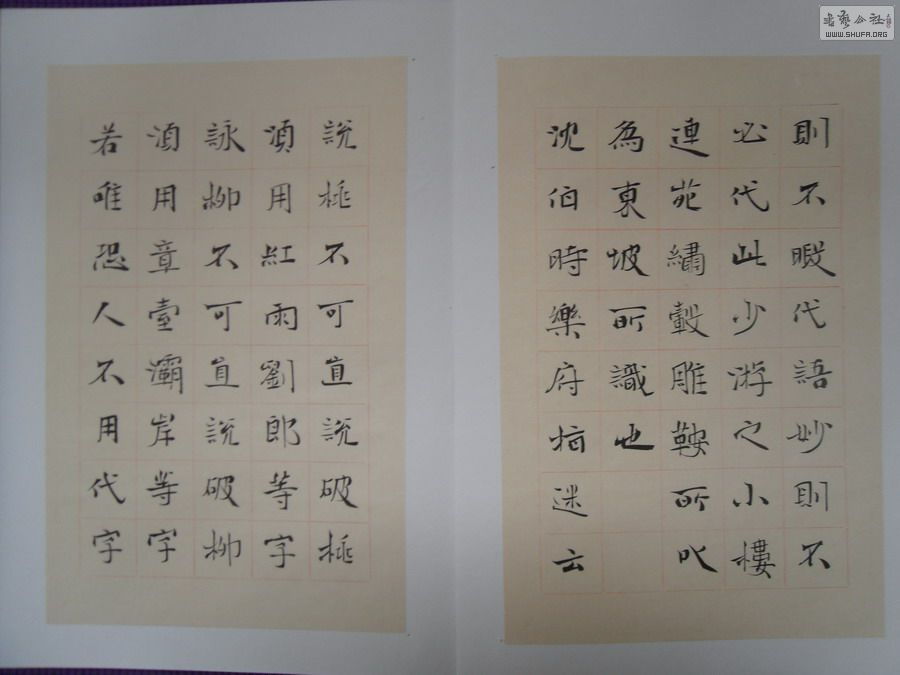 則不暇代語妙則不
必代此少游之小樓
連苑繡轂雕鞍所以
為東坡所識也
沈伯時樂府指迷云
說桃不可直說破桃
須用紅雨劉郎等字
詠柳不可直說破柳
須用章臺灞岸等字
若唯恐人不用代字
書藝公社
WWW.SHUFA.ORG